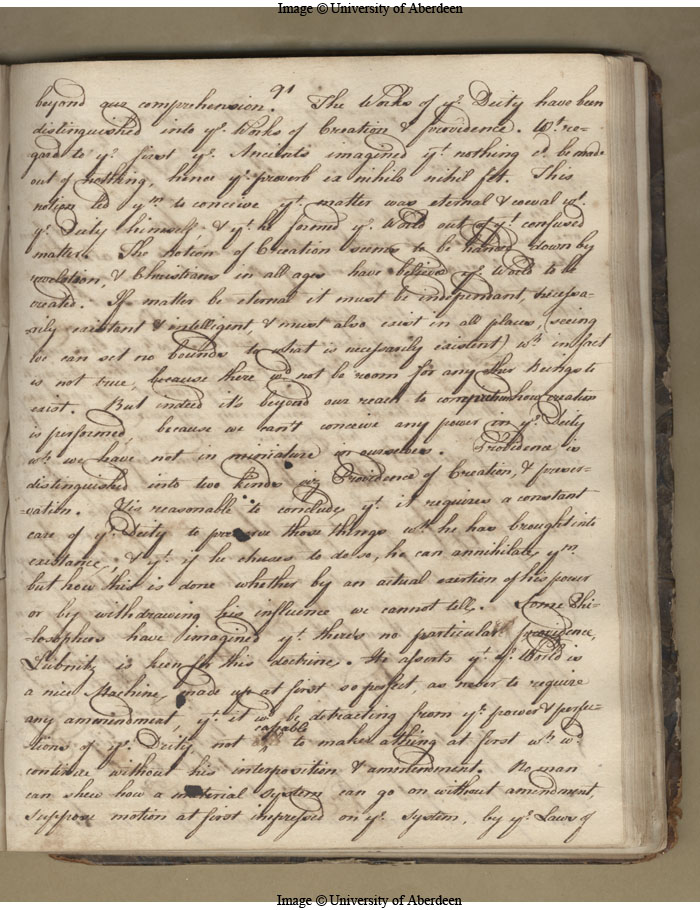 Image © University of Aberdeen
91
beyond our comprehension. The Works of ye Deity have been
distinguished into ye Works of Creation & providence. Wt re=
gard to ye first ye Ancients imagined yt nothing cd be made
out of nothing, hence ye proverb ex nihilo nihil fit. This
notion led ym to conceive yt matter was eternal & coeval wt
ye Deity himself & yt he formed ye World out of yt confused
matter. The notion of Creation seems to be handed down by
revelation, & Christians in all ages have believed ye World to be
created. If matter be eternal it must be independant, necessa=
rily existant & intelligent, & must also exist in all places, (seeing
we can set no bounds to what is necessarily existent) wh in fact
is not true, because there wd not be room for any other Beings to
exist. But indeed it's beyond our reach to comprehend how creation
is performed, because we can't conceive any power in ye Deity
wh we have not in miniature in ourselves. Providence is
distinguished into two kinds viz Providence of Creation, & preser=
=vation. Tis reasonable to conclude yt it requires a constant
care of ye Deity to preserve those things wh he has brought into
existance, & yt if he chuses to do so, he can annihilate ym
but how this is done whether by an actual exertion of his power
or by withdrawing his influence we cannot tell. Some Phi=
=losophers have imagined yt there's no particular providence,
Liebnitz is keen for this doctrine. He asserts yt ye World is
a nice Machine, made up at first so perfect, as never to require
any ammendment, yt it wd be detracting from ye power & perfec=
capable
tions of ye Deity not to make a thing at first wh wd
continue without his interposition & ammendment. No man
can shew how a material system can go on without amendment,
suppose motion at first impressed on ye system, by ye Laws of
Image © University of Aberdeen